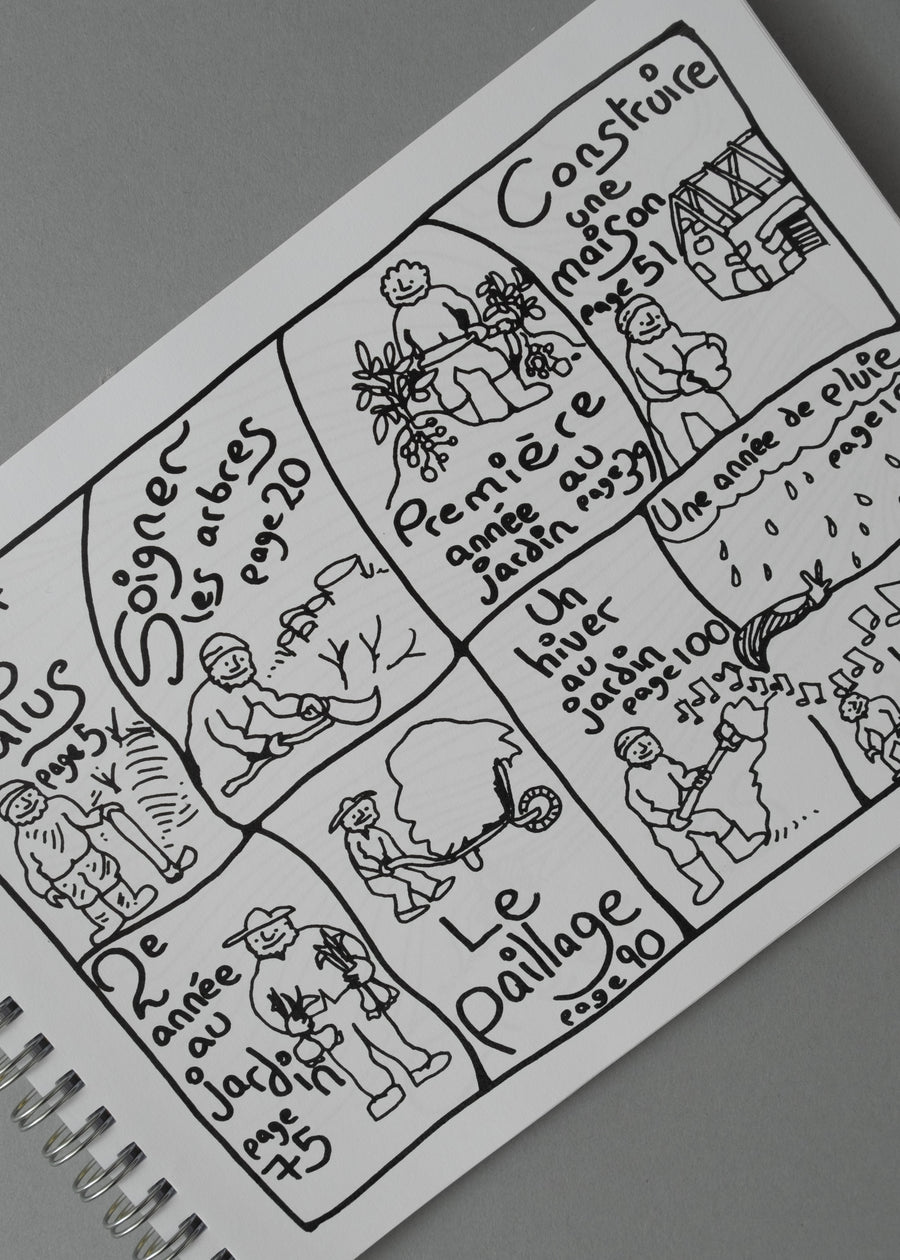 page 5
Soigner
les arbres
page 20
Première
année au
jardin page 39
Construire
une
maison
page 51
2e
année
au
jardin
page
75
Le
paillage
page 90
Un
hiver
au
jardin
page 100
Une année de pluie